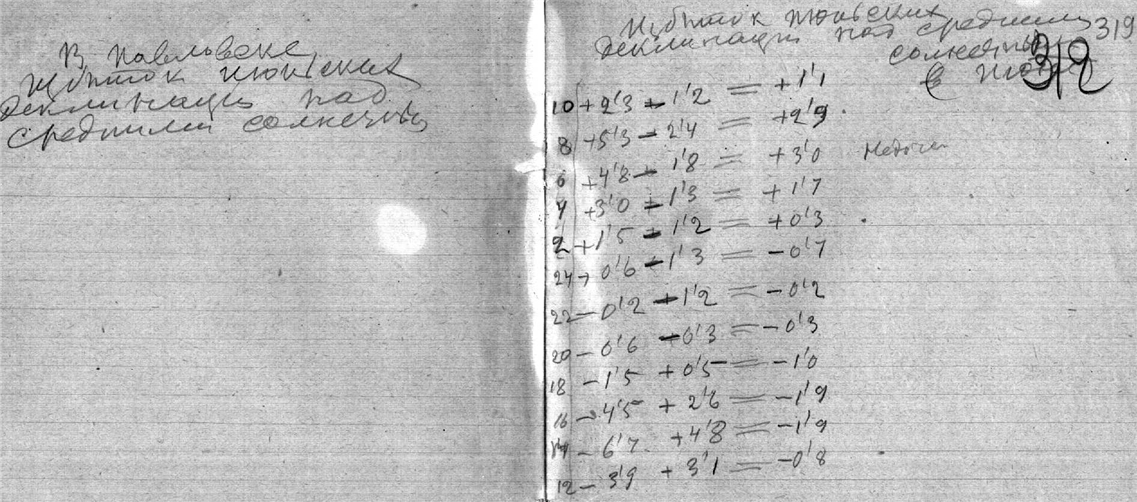 В Павловске
Избыток июньских
деклинаций над
средними солнечными
Избыток июньских
деклинаций над средними 319
солнечными 319
в июне
10 +2'3 - 1'2 = +1'1
8 +5'3 - 2'4 = +2'9
6 +4'8 - 1'8 = +3'0
4 +3'0 - 1'3 = +1'7
2 +1'5 - 1'2 = +0'3
24 + 0'6 - 1'3 = -0'7
22 - 0'2 + 1'2 = -0'2
20 - 0'6 +0'3 = -0'3
18 - 1'5 + 0'5 = -1'0
16 - 4'5 + 2'6 = -1'9
14 - 6'7 +4'8 = -1'9
12 - 3'9 + 3'1 = -0'8